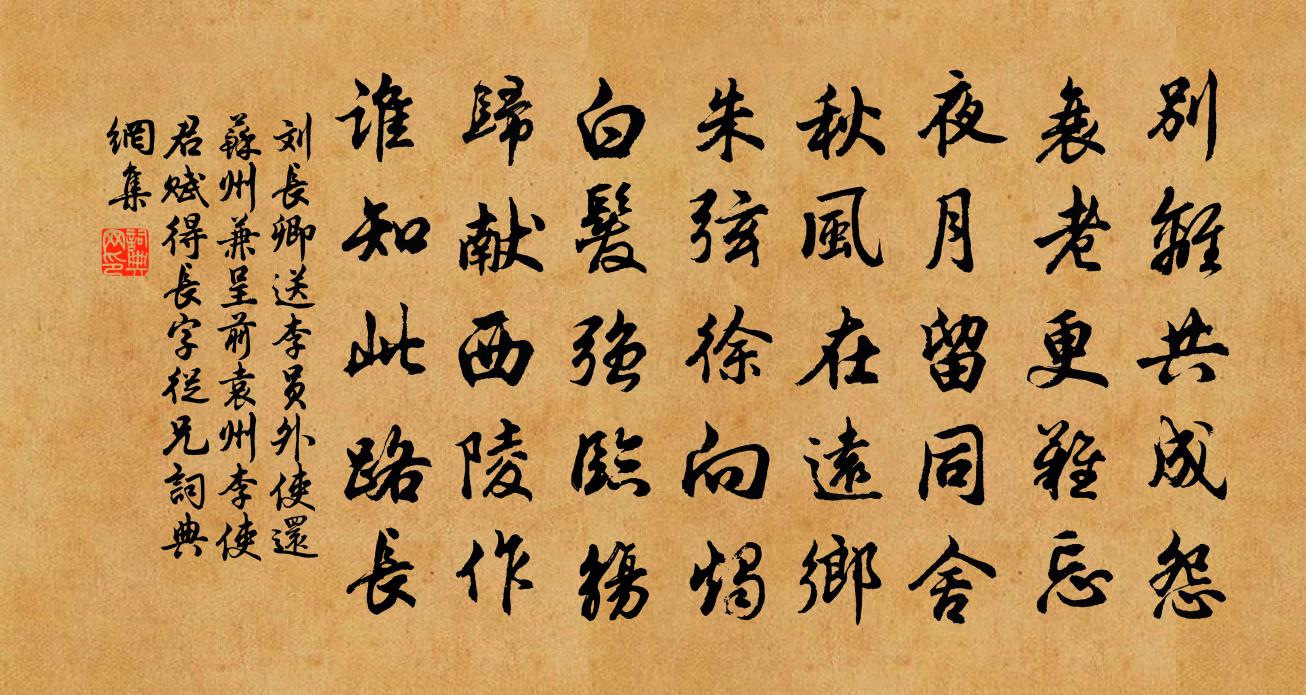 別離共成怨
衰老更難忘
夜月留同舍
秋風在遠鄉
朱弦徐向燭
白髮強臨觴
歸献西陵作
谁知此路長
刘長卿送李員外使還
蘇州兼呈前袁州李使
君赋得長字從兄詞典
網集
詞典網印